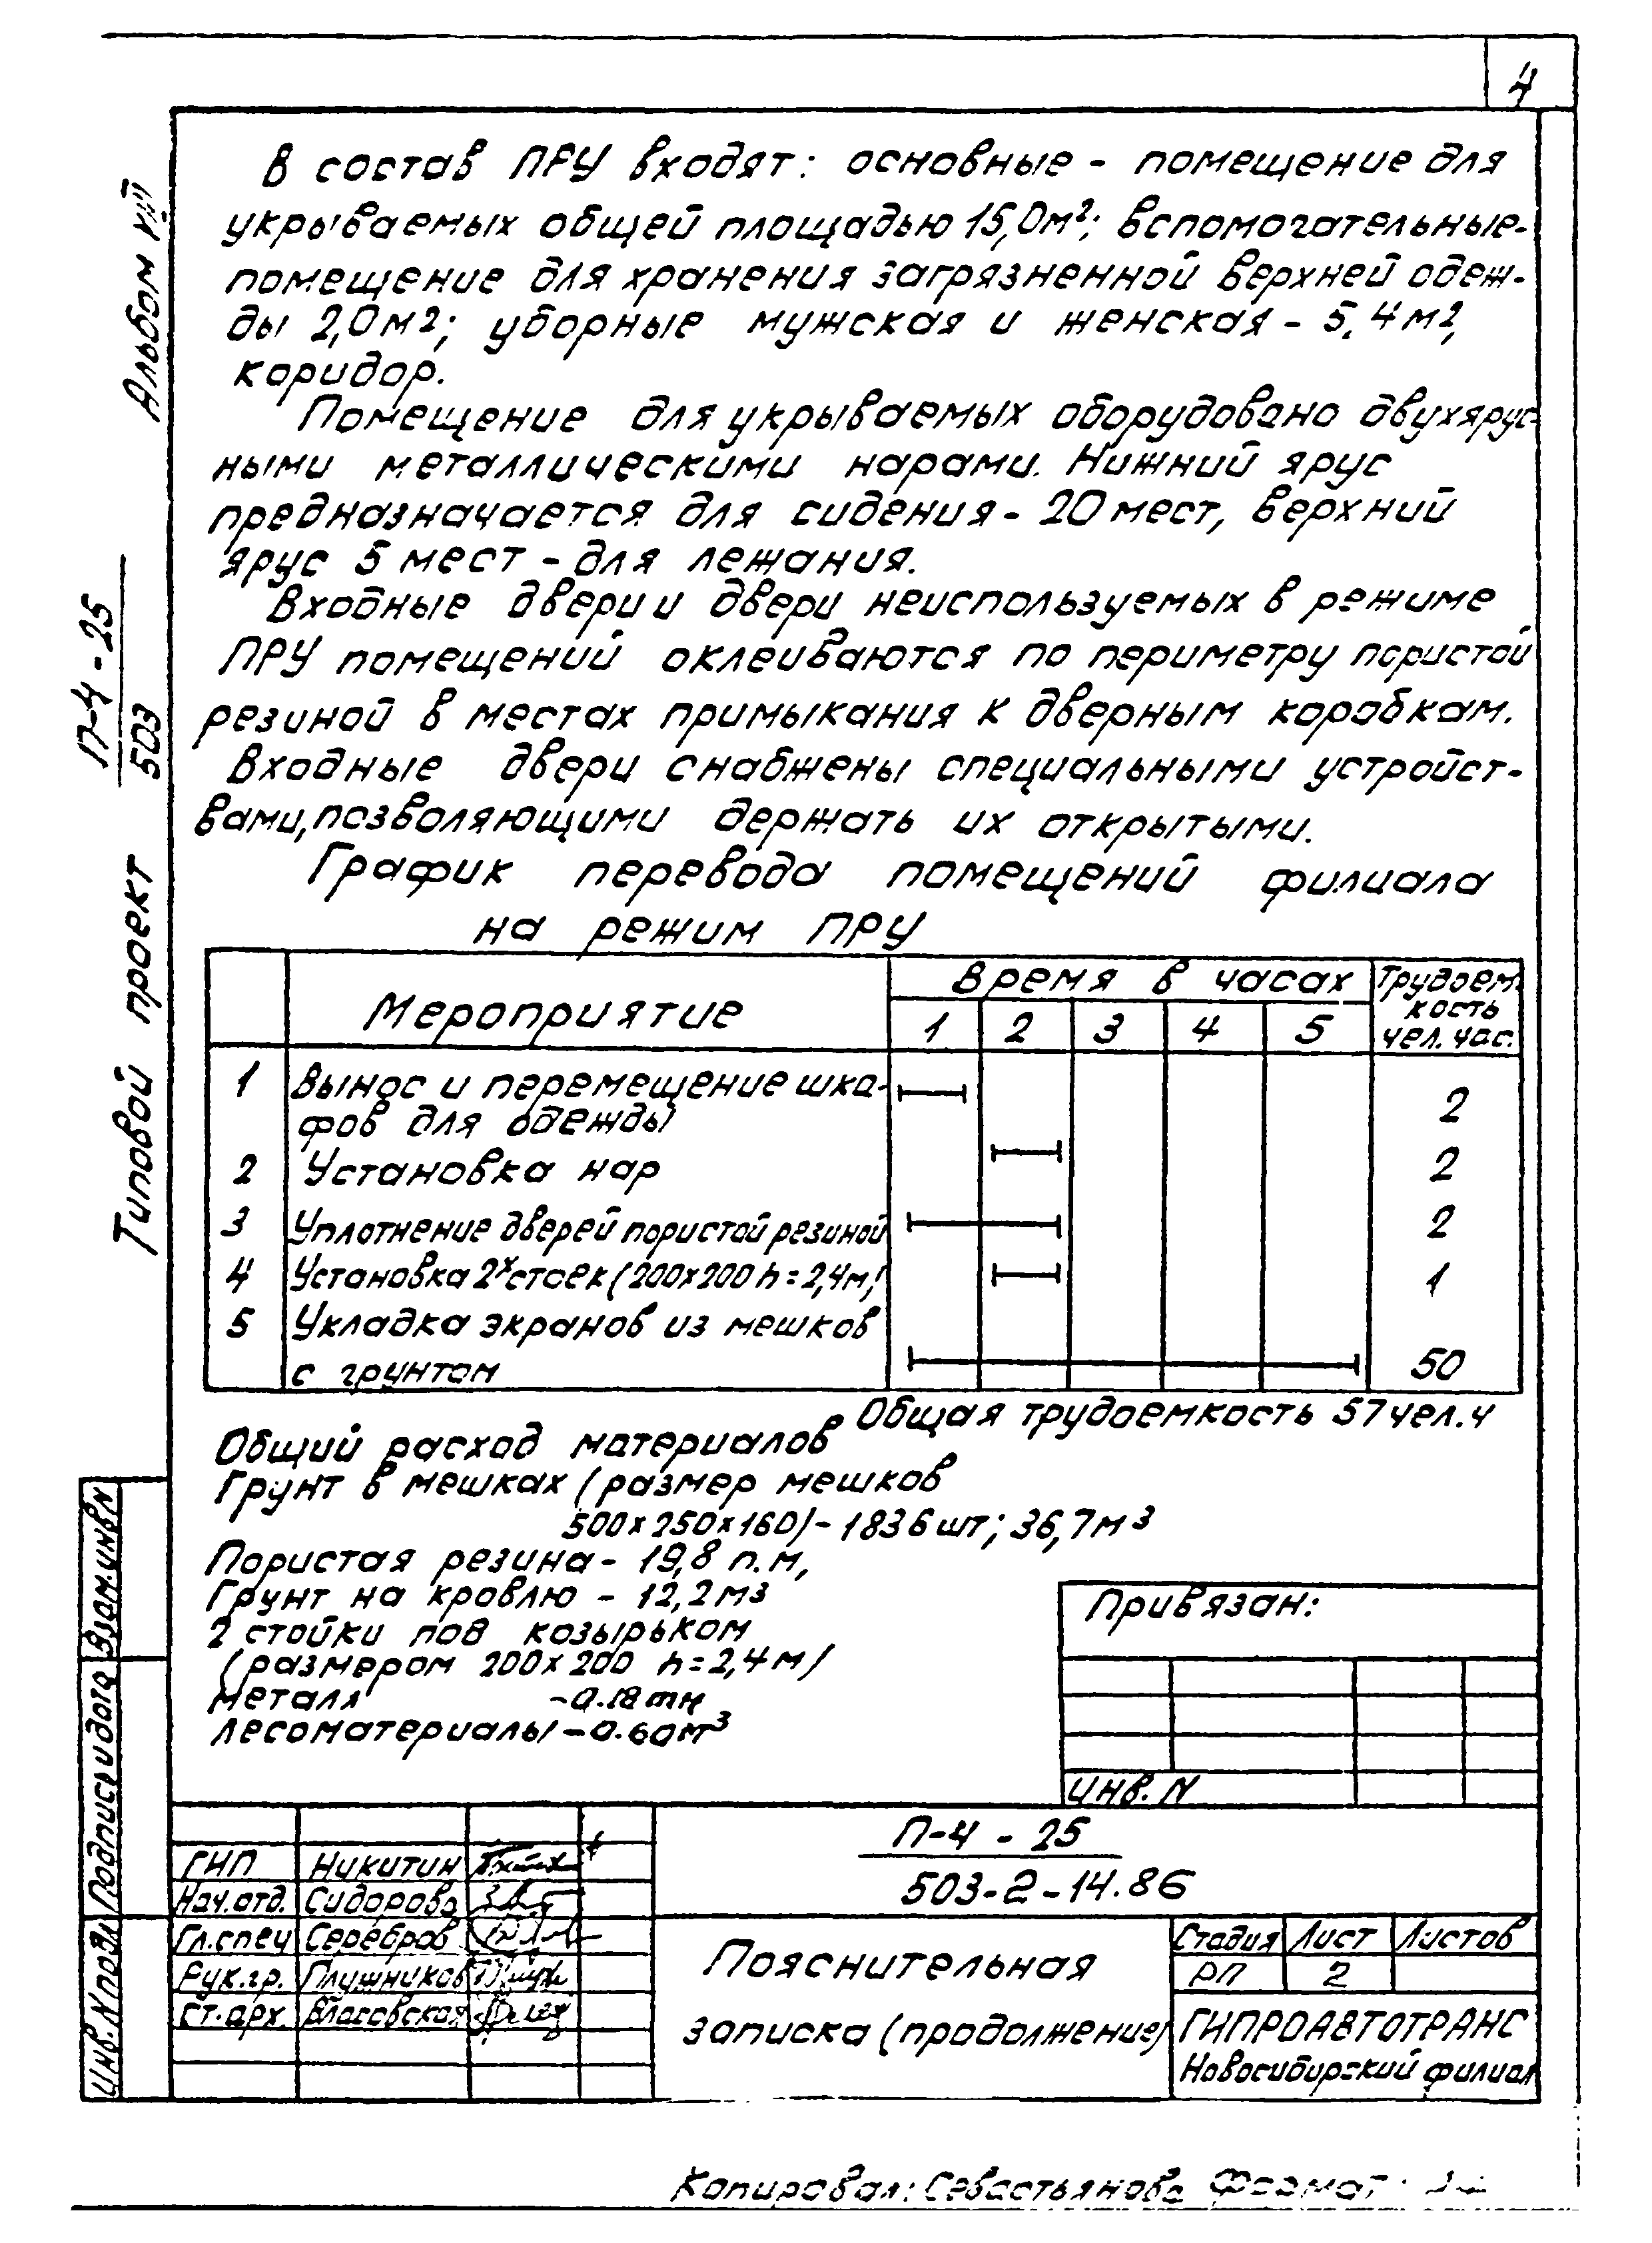 4
В состав ПРУ входят: основные - помещение для
укрываемых общей площадью 15,0м²; вспомогательные-
помещение для хранения загрязненной верхней одеж-
ды 2,0м2; уборные мужская и женская - 5.4м2,
коридор.
Помещение для укрываемых оборудовано двухярус-
ными металлическими нарами. Нижний ярус
предназначается для сидения - 20 мест, верхний
ярус 5 мест - для лежания.
Входные двери и двери неиспользуемых в режиме
ПРУ помещений оклеиваются по периметру пористой
резиной в местах примыкания к дверным коробкам.
Входные двери снабжены специальными устройст-
вами, позволяющими держать их открытыми.
График перевода помещений филиала
на режим ПРУ
Мероприятие
Время в часах
1 2 3 4 5
Трудоем.
кость
чел. час.
1 Вынос и перемещение шка-
фов для одежды 2
2 Установка нар 2
3 Уплотнение дверей пористой резиной 2
4 Установка 2х стоек (200х200 h=2,4м) 1
5 Укладка экранов из мешков
с грунтом 50
Общая трудоемкость 57 чел.ч
Общий расход материалов
Грунт в мешках (размер мешков
500х250х160) - 1836 шт; 36,7м3
Пористая резина - 19,8 п.м,
Грунт на кровлю - 12,2м3
2 стойки под козырьком
(размером 200х200 h=2,4м)
металл -0.18тн
лесоматериалы -0.60м3
Привязан:
Инв. N
П-4-25
503-2-14.86
ГИП Никитин
Нач.отд. Сидорова
Гл.спец Серебров
Рук.гр. Плушников
Ст.арх. Власовская
Пояснительная
записка (продолжение)
Стадия Лист Листов
РП 2
ГИПРОАВТОТРАНС
Новосибирский филиал
Альбом
Типовой проект П-4-25
503
Взам.инвN
Подпись и дата
Инв.Nподл
Копировал: Севастьянова Формат: